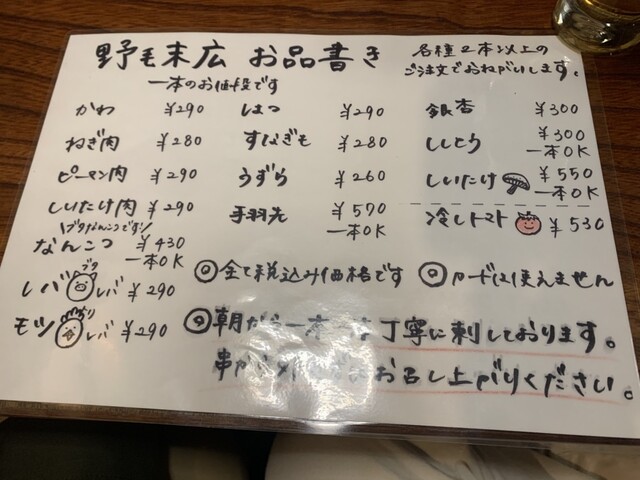 野毛末広 お品書き
一本のお値段です
各種2本以上の
ご注文でおねがいします。
かわ ¥290
ねぎ肉 ¥280
ピーマン肉 ¥290
しいたけ肉 ¥290
\ブタなんこつです!/
なんこつ ¥430
一本OK
ブタ
レバ レバ ¥290
とり
モツ レバ ¥290
はつ ¥290
すなぎも ¥280
うずら ¥260
手羽先 ¥570
一本OK
銀杏 ¥300
ししとう ¥300
一本OK
しいたけ ¥550
一本OK
冷しトマト ¥530
◎全て税込み価格です
◎カードは使えません
◎朝から一本 丁寧に刺しております。
串か お召し上がりください。